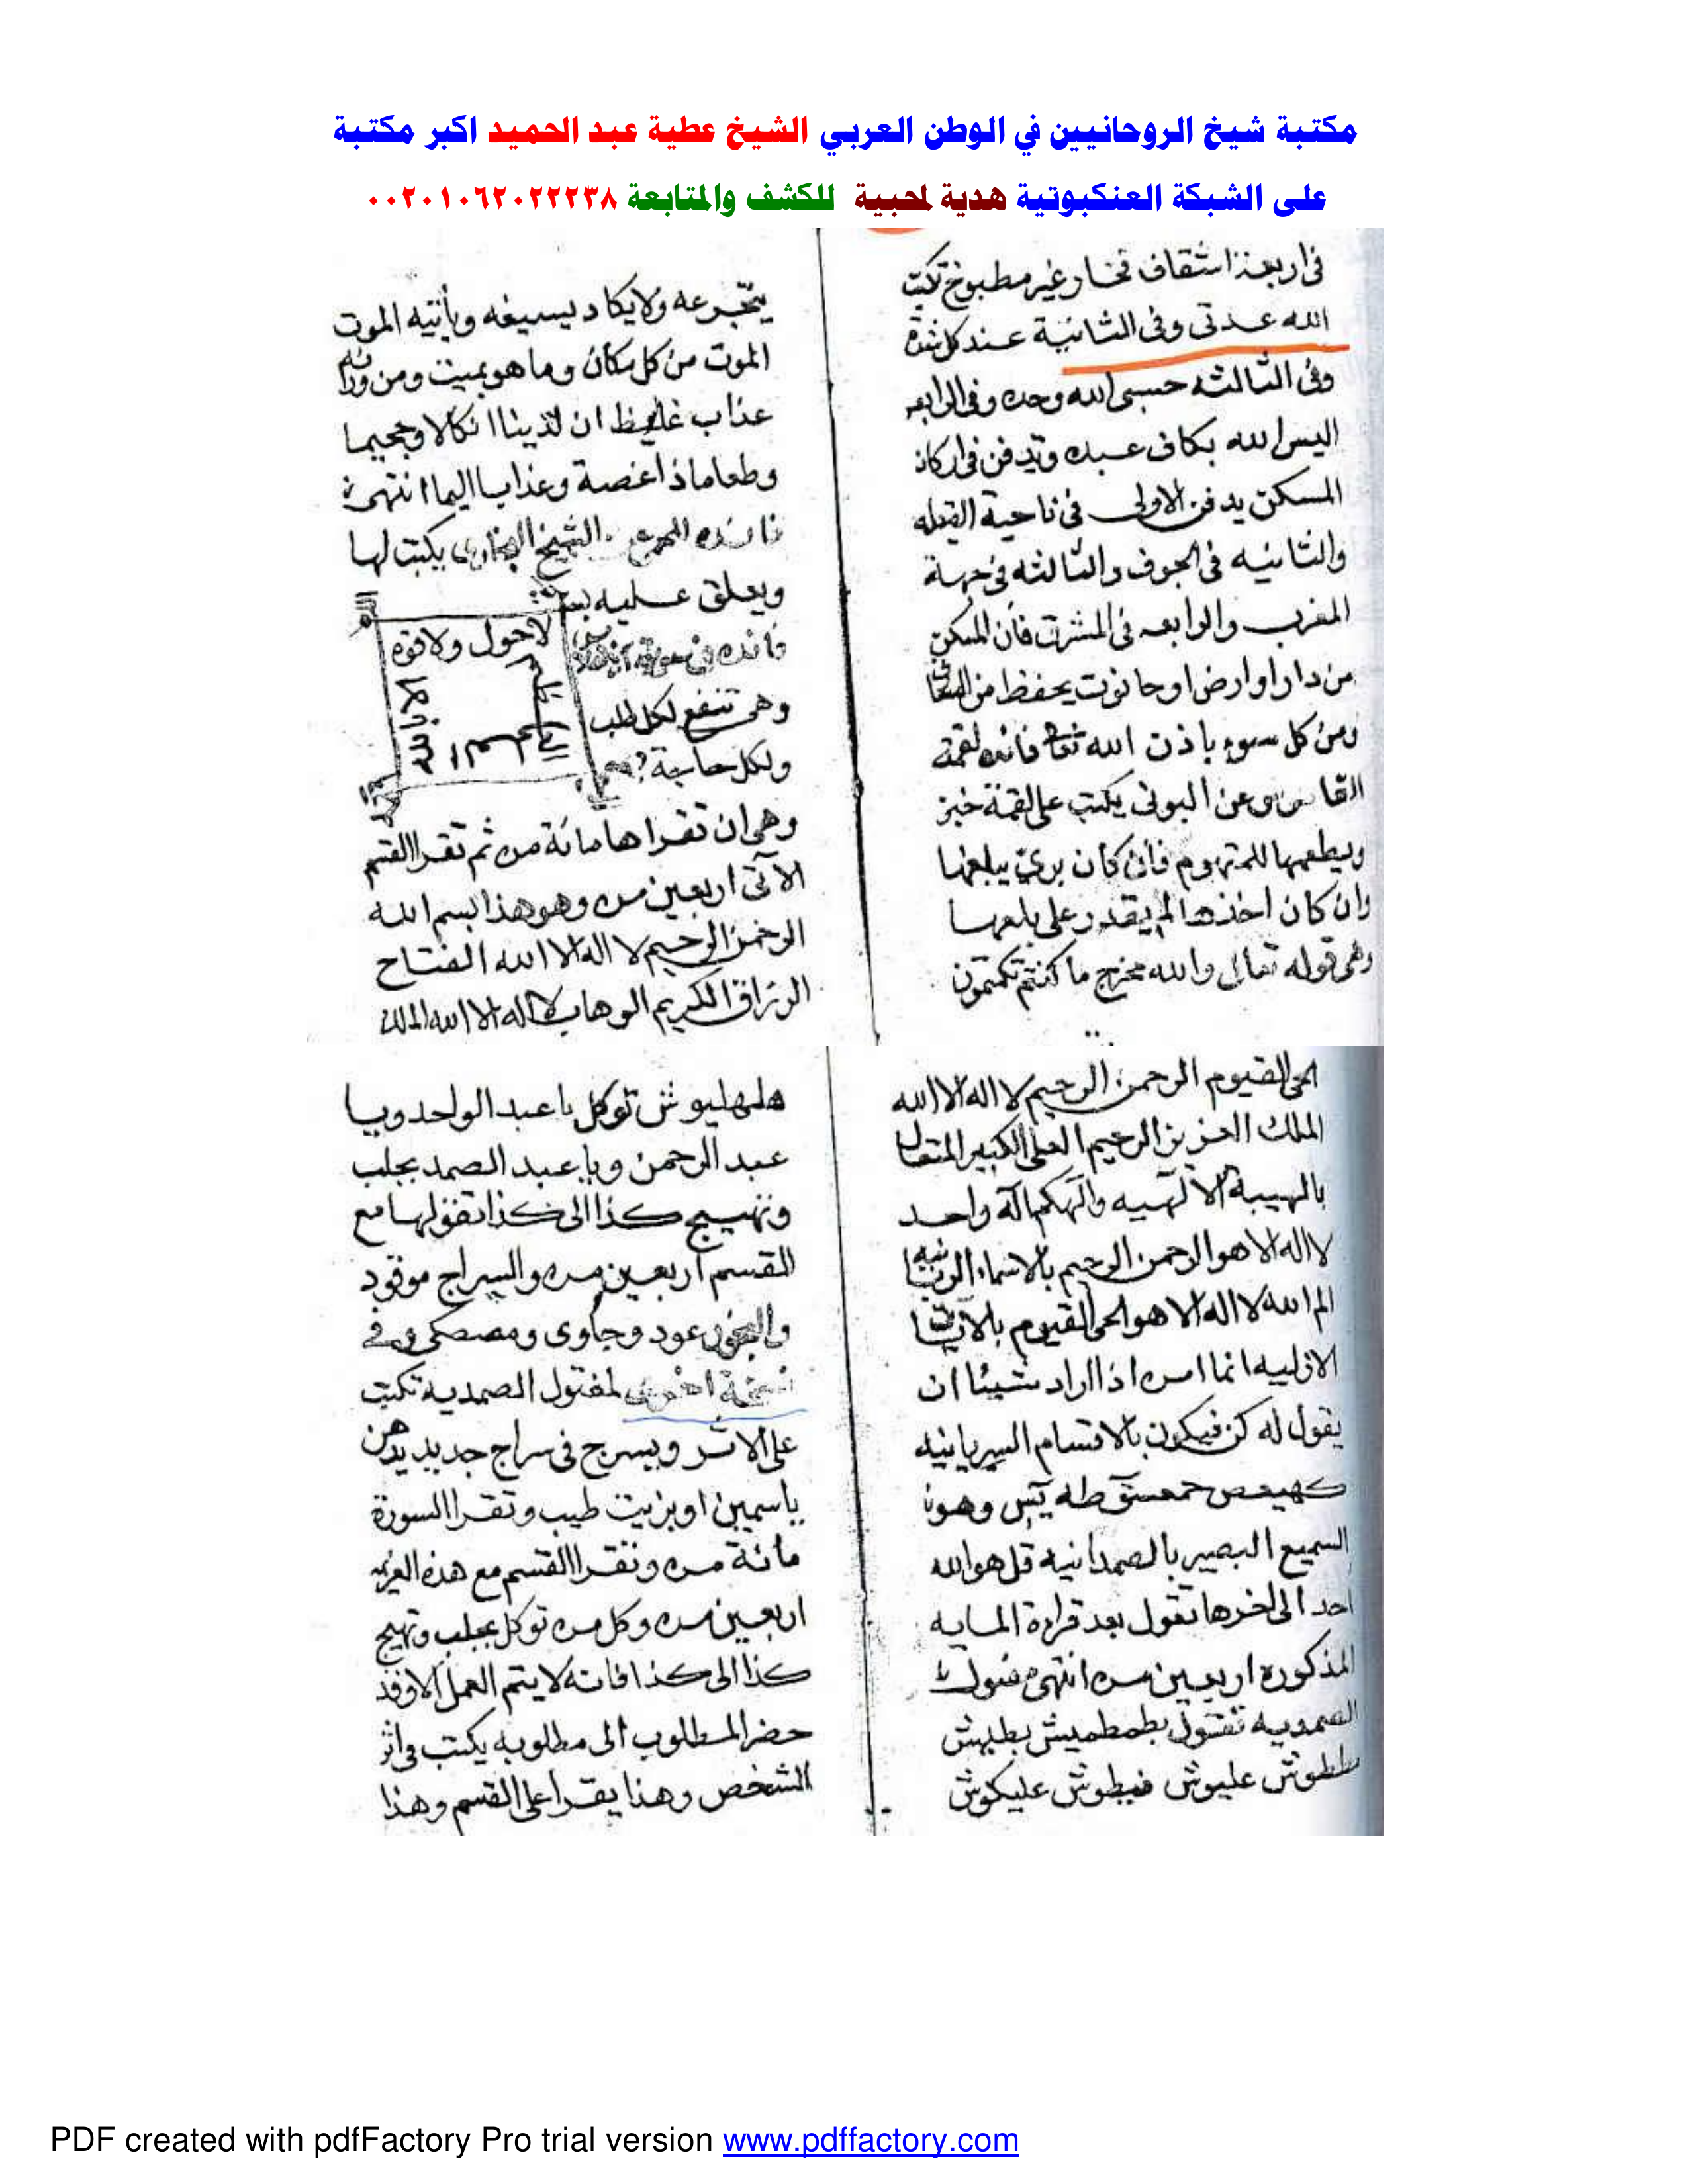 مكتبة شيخ الروحانيين في الوطن العربي الشيخ عطية عبد الحميد اكبر مكتبة
على الشبكة العنكبوتية هدية لمحبية للكشف والمتابعة ٠٠٢٠١٠٦٢٠٢٢٢٣٨
فى اربعة اشقاف فخار غير مطبوخ تكتب
الله عدتى وفى الثانية عند كل شدة
وفى الثالثه حسبى الله وحده وفى الرابعه
اليس الله بكاف عبده وتدفن فى اركان
المسكن يدفن الاولى فى ناحية القبله
والثانيه فى الجوف والثالثه فى جهة
المغرب والرابعه فى المشرق فان المسكن
من دار او ارض او حانوت يحفظ من
ومن كل سوء باذن الله تعالى فائده لقمة
القاضى وعن البونى يكتب على لقمة خبز
ويطعمها للمتهوم فان كان برئ يبلعها
وان كان اخذها لم يقدر على بلعها
وهى قوله تعالى والله مخرج ما كنتم تكتمون
يتجرعه ولا يكاد يسيغه ويأتيه الموت
الموت من كل مكان وما هو بميت ومن ورائه
عذاب غليظ ان لدينا انكالا وجحيما
وطعاما ذا غصة وعذابا اليما انتهى
فائده الشيخ البخارى يكتب لها
ويعلق عليه
لا حول ولا قوة
الا بالله
العلى
العظيم
فائده فى سورة
وهى تنفع لكل طلب
ولكل حاجة
وهى ان تقراها مائة مره ثم تقرا القسم
الآتى اربعين مره وهو هذا بسم الله
الرحمن الرحيم لا اله الا الله الفتاح
الرزاق الكريم الوهاب لا اله الا الله الملك
الحى القيوم الرحمن الرحيم لا اله الا الله
الملك العزيز الرحيم العلى الكبير المتعال
بالهيبة الالهيه والهكم اله واحد
لا اله الا هو الرحمن الرحيم بالاسماء الربانيه
الم الله لا اله الا هو الحى القيوم
الازليه انما امره اذا اراد شيئا ان
يقول له كن فيكون بالاقسام السريانيه
كهيعص حمعسق طه يس وهو
السميع البصير بالصمدانيه قل هو الله
احد الى اخرها تقول بعد قراءة المايه
المذكوره اربعين مره انتهى
الصمديه تقول بطمطميش بطليهش
ططوش عليوش فيطوش عليكوش
هلهليوش توكل يا عبد الواحد ويا
عبد الرحمن ويا عبد الصمد بجلب
وتهييج كذا الى كذا تقولها مع
القسم اربعين مره والسراج موقود
والبخور عود وجاوى ومصطكى وفى
نسخة اخرى لمفتول الصمديه تكتب
على الاثر ويسرج فى سراج جديد بدهن
ياسمين او بزيت طيب وتقرا السورة
مائة مره وتقرا القسم مع هذه العزيمه
اربعين مره وكل مره توكل بجلب وتهيج
كذا الى كذا فانه لا يتم العمل الا وقد
حضر المطلوب الى مطلوبه يكتب فى اثر
الشخص وهذا يقرا على القسم وهذا
PDF created with pdfFactory Pro trial version www.pdffactory.com